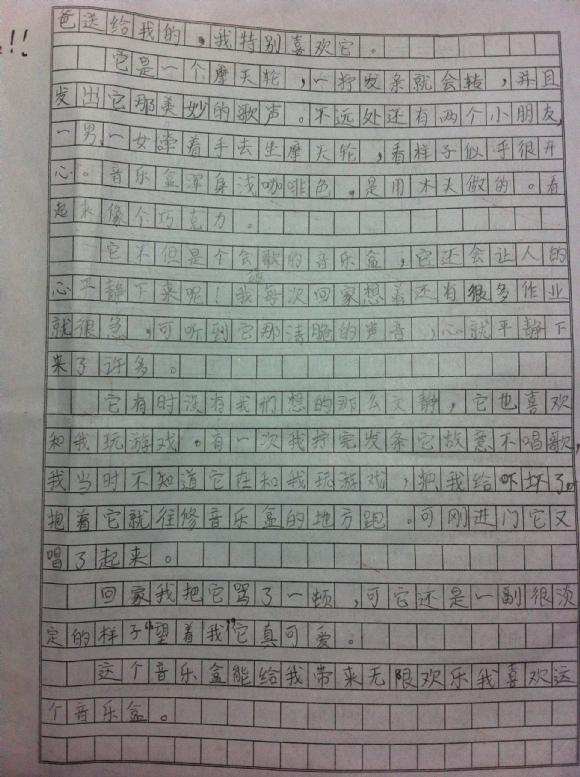 !!
爸送给我的，我特别喜欢它。
它是一个摩天轮，一拧发条就会转，并且
发出它那美妙的歌声。不远处还有两个小朋友，
一男，一女牵着手去坐摩天轮，看样子似乎很开
心。音乐盒浑身浅咖啡色，是用木头做的。看
起来像个巧克力。
它不但是个会歌的音乐盒，它还会让人的
心平静下来呢！我每次回家想着还有很多作业
就很急，可听到它那清脆的声音，心就平静下
来了许多。
它有时没有我们想的那么文静，它也喜欢
和我玩游戏。有一次我拧完发条它故意不唱歌，
我当时不知道它在和我玩游戏，把我给吓坏了。
抱着它就往修音乐盒的地方跑。可刚进门它又
唱了起来。
回家我把它骂了一顿，可它还是一副很淡
定的样子“望着我”它真可爱。
这个音乐盒能给我带来无限欢乐我喜欢这
个音乐盒。